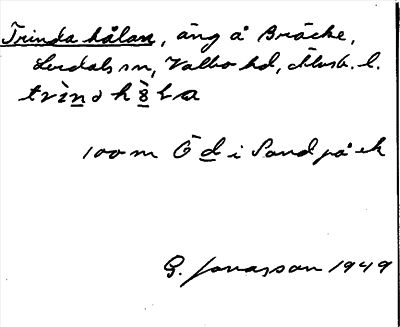 Trinda hålan, äng å Bräcke,
Lerdals sn, Valbo hd, Älvsb. l.
100 m Ö d i Sandpåek
G. Jonasson 1949